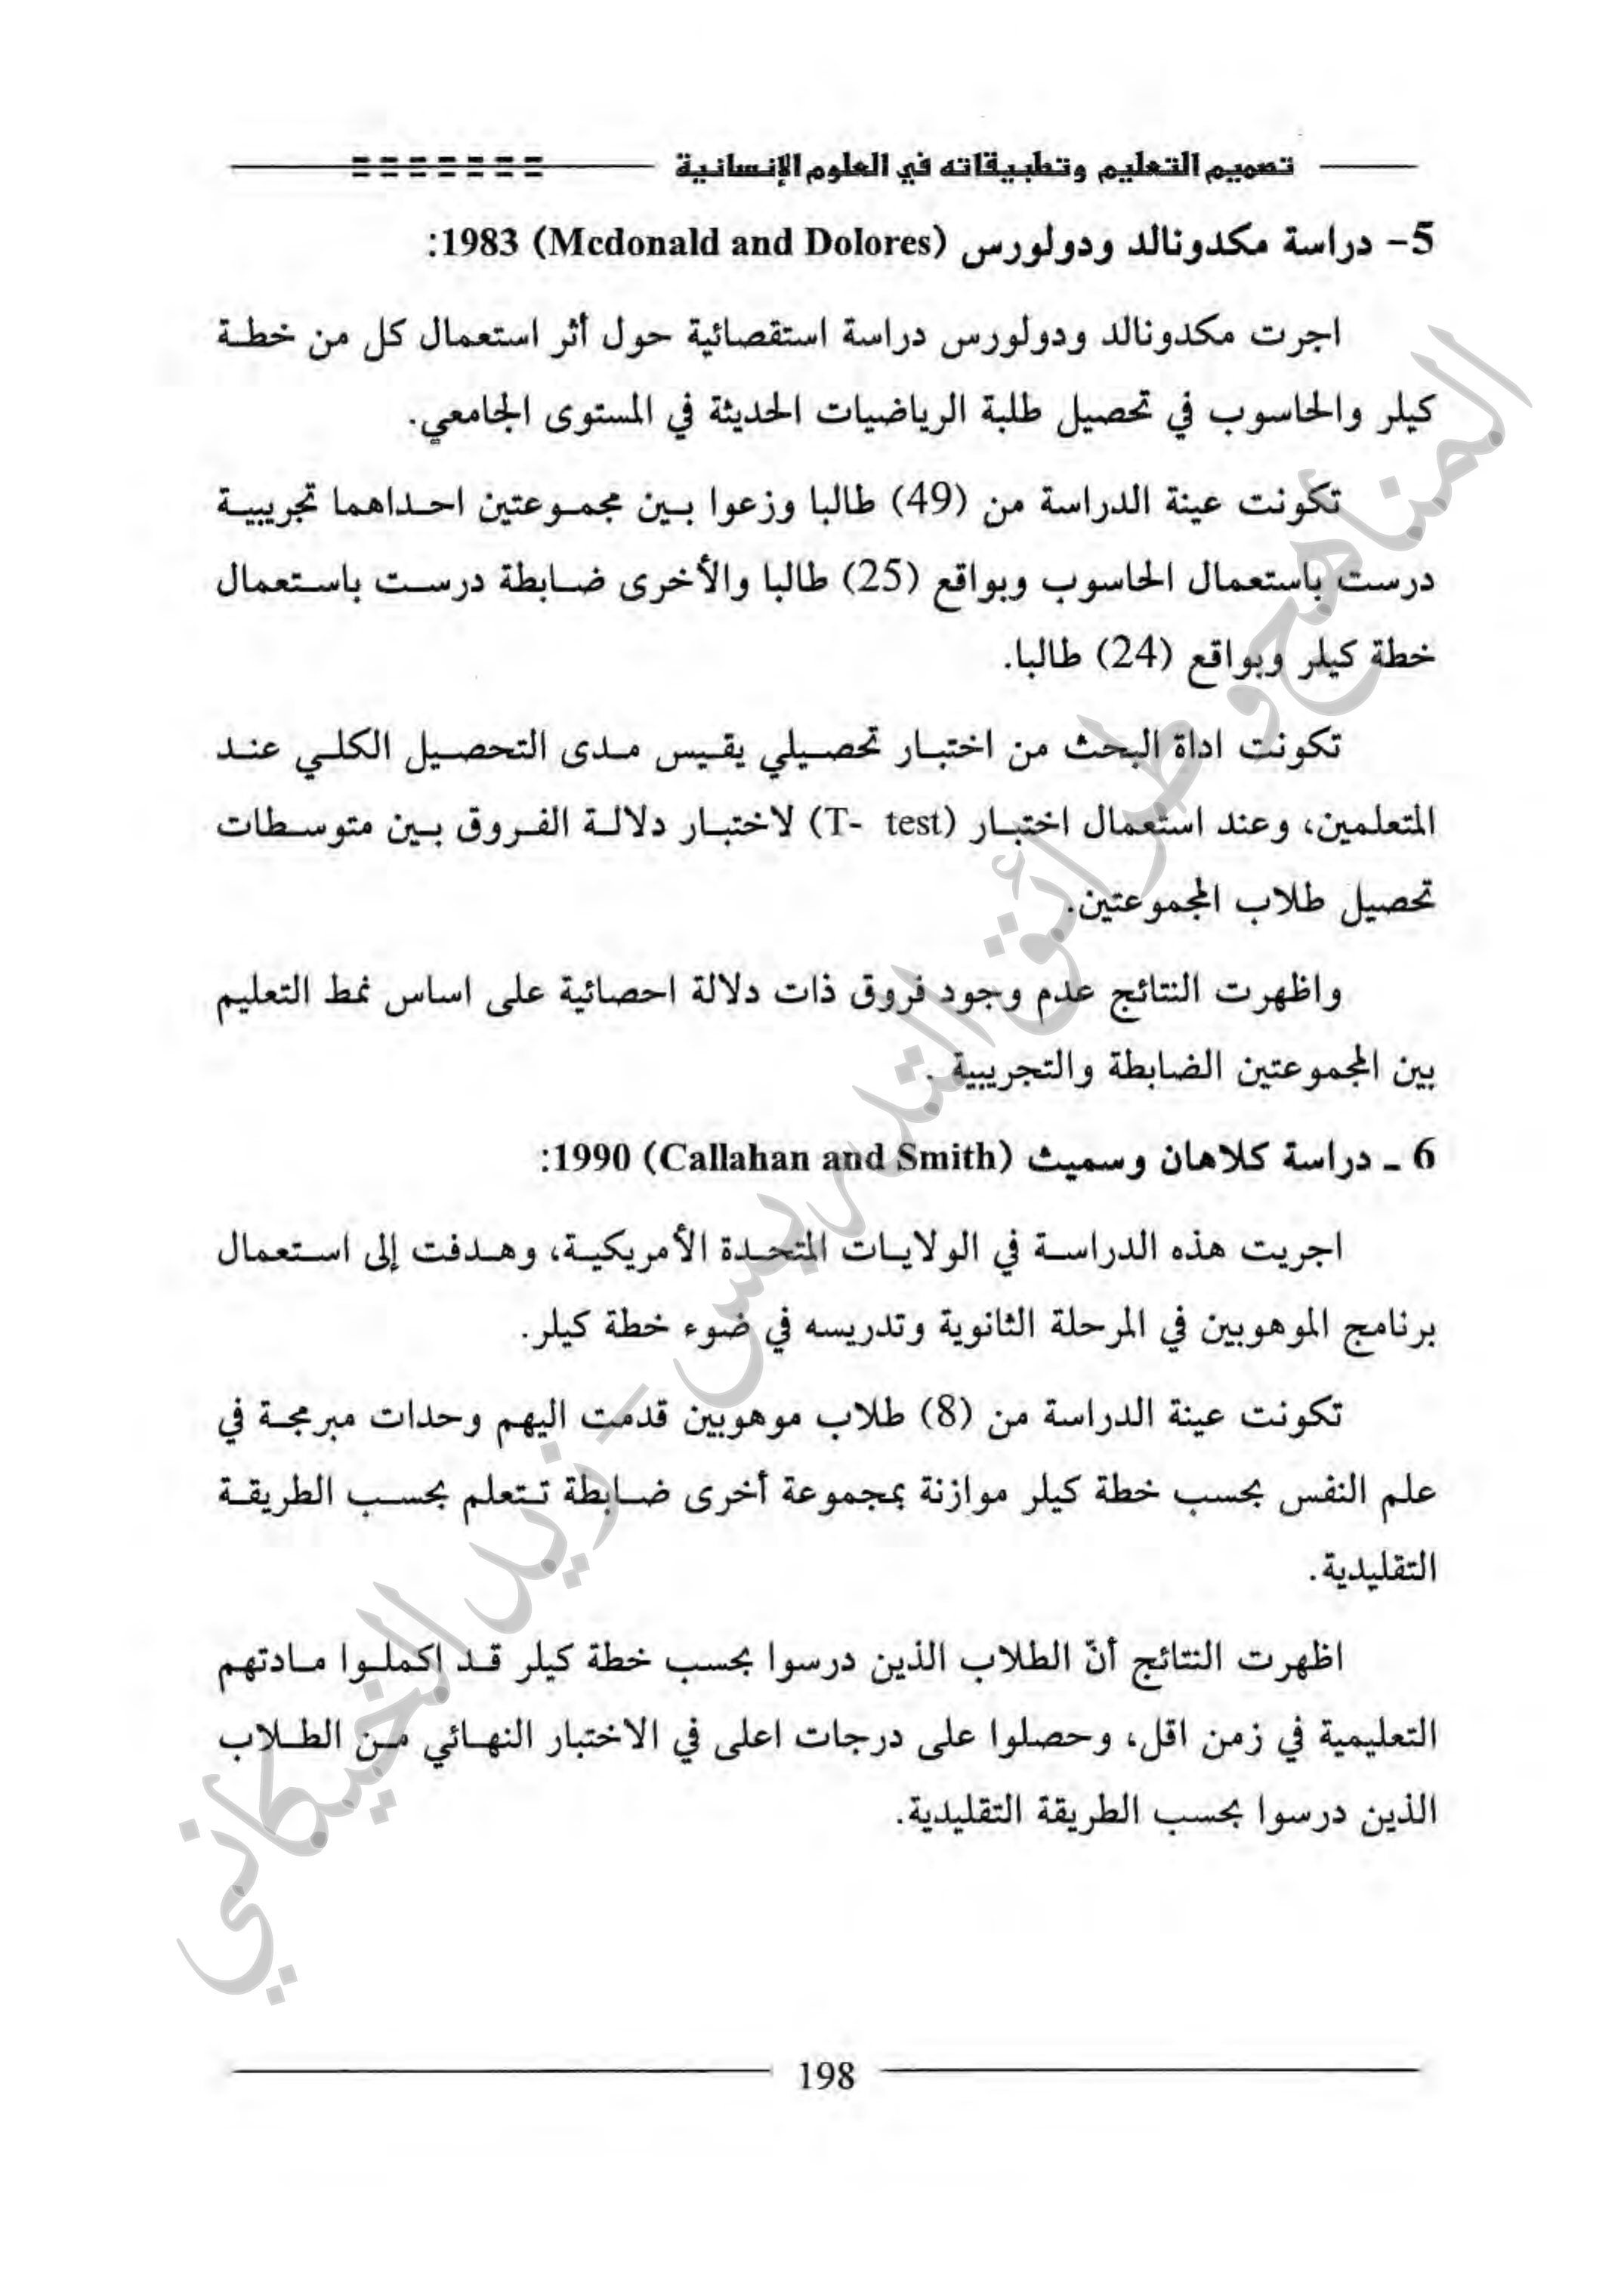 تصميم التعليم وتطبيقاته في العلوم الإنسانية
5- دراسة مكدونالد ودولورس (Mcdonald and Dolores) 1983:
اجرت مكدونالد ودولورس دراسة استقصائية حول أثر استعمال كل من خطة
كيلر والحاسوب في تحصيل طلبة الرياضيات الحديثة في المستوى الجامعي.
تكونت عينة الدراسة من (49) طالبا وزعوا بين مجموعتين احداهما تجريبية
درست باستعمال الحاسوب وبواقع (25) طالبا والأخرى ضابطة درست باستعمال
خطة كيلر وبواقع (24) طالبا.
تكونت اداة البحث من اختبار تحصيلي يقيس مدى التحصيل الكلي عند
المتعلمين، وعند استعمال اختبار (T- test) لاختبار دلالة الفروق بين متوسطات
تحصيل طلاب المجموعتين.
واظهرت النتائج عدم وجود فروق ذات دلالة احصائية على اساس نمط التعليم
بين المجموعتين الضابطة والتجريبية .
6 ـ دراسة كلاهان وسميث (Callahan and Smith) 1990:
اجريت هذه الدراسة في الولايات المتحدة الأمريكية، وهدفت إلى استعمال
برنامج الموهوبين في المرحلة الثانوية وتدريسه في ضوء خطة كيلر.
تكونت عينة الدراسة من (8) طلاب موهوبين قدمت اليهم وحدات مبرمجة في
علم النفس بحسب خطة كيلر موازنة بمجموعة أخرى ضابطة تتعلم بحسب الطريقة
التقليدية.
اظهرت النتائج أنّ الطلاب الذين درسوا بحسب خطة كيلر قد اكملوا مادتهم
التعليمية في زمن اقل، وحصلوا على درجات اعلى في الاختبار النهائي من الطلاب
الذين درسوا بحسب الطريقة التقليدية.
198
المناهج وطرائق التدريس - زيد الخيكاني